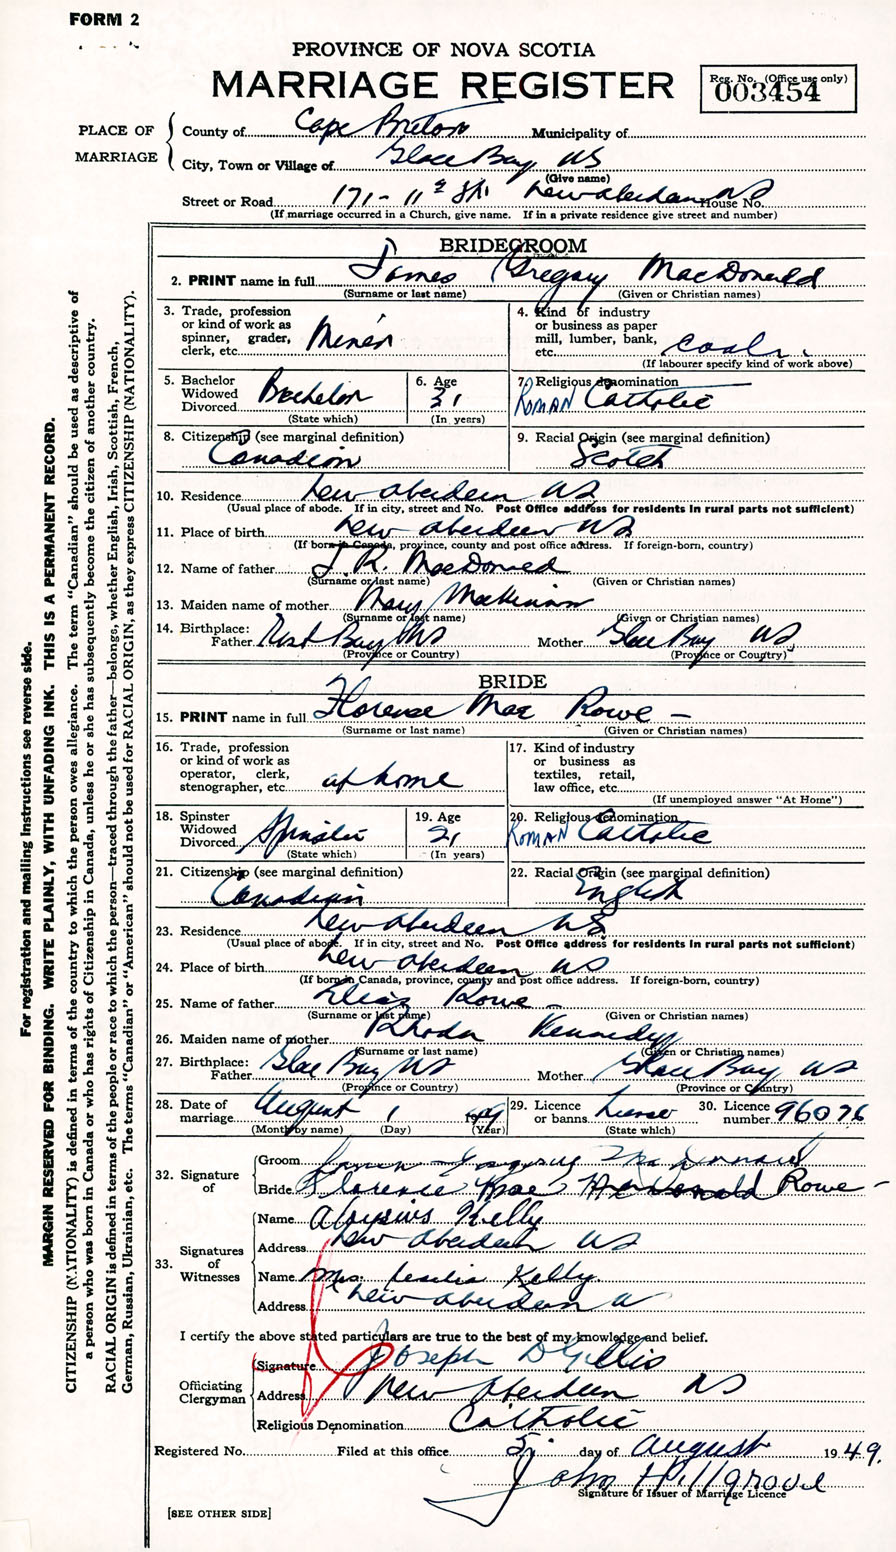 FORM 2
PROVINCE OF NOVA SCOTIA
MARRIAGE REGISTER
Reg. No. (Office use only)
003454
PLACE OF MARRIAGE
County of Cape Breton Municipality of
City, Town or Village of Glace Bay NS
(Give name)
Street or Road 171 - 11th St. New Aberdeen NS House No.
(If marriage occurred in a Church, give name. If in a private residence give street and number)
BRIDEGROOM
2. PRINT name in full James Gregory MacDonald
(Surname or last name) (Given or Christian names)
3. Trade, profession or kind of work as spinner, grader, clerk, etc. Miner
4. Kind of industry or business as paper mill, lumber, bank, etc. coal
(If labourer specify kind of work above)
5. Bachelor Widowed Divorced Bachelor
(State which)
6. Age 31
(In years)
7. Religious denomination ROMAN Catholic
8. Citizenship (see marginal definition)
Canadian
9. Racial Origin (see marginal definition)
Scotch
10. Residence New Aberdeen NS
(Usual place of abode. If in city, street and No. Post Office address for residents in rural parts not sufficient)
11. Place of birth New Aberdeen NS
(If born in Canada, province, county and post office address. If foreign-born, country)
12. Name of father J. R. MacDonald
(Surname or last name) (Given or Christian names)
13. Maiden name of mother Mary MacKinnon
(Surname or last name) (Given or Christian names)
14. Birthplace: Father Bay NS Mother Glace Bay NS
(Province or Country) (Province or Country)
BRIDE
15. PRINT name in full Florense Mae Rowe -
(Surname or last name) (Given or Christian names)
16. Trade, profession or kind of work as operator, clerk, stenographer, etc. at home
17. Kind of industry or business as textiles, retail, law office, etc.
(If unemployed answer "At Home")
18. Spinster Widowed Divorced Spinster
(State which)
19. Age 21
(In years)
20. Religious denomination ROMAN Catholic
21. Citizenship (see marginal definition)
Canadian
22. Racial Origin (see marginal definition)
English
23. Residence New Aberdeen N.S.
(Usual place of abode. If in city, street and No. Post Office address for residents in rural parts not sufficient)
24. Place of birth New Aberdeen NS
(If born in Canada, province, county and post office address. If foreign-born, country)
25. Name of father Elias Rowe -
(Surname or last name) (Given or Christian names)
26. Maiden name of mother Rhoda Kennedy
(Surname or last name) (Given or Christian names)
27. Birthplace: Father Glace Bay NS Mother Glace Bay NS
(Province or Country) (Province or Country)
28. Date of marriage August 1 1949
(Month by name) (Day) (Year)
29. Licence or banns License
(State which)
30. Licence number 96076
32. Signature of
Groom James Gregory MacDonald
Bride Florence Mae MacDonald Rowe -
33. Signatures of Witnesses
Name Aloysius Kelly
Address New Aberdeen NS
Name Mrs. Kelly
Address New Aberdeen N
I certify the above stated particulars are true to the best of my knowledge and belief.
Officiating Clergyman
Signature Joseph D Gillis
Address New Aberdeen NS
Religious Denomination Catholic
Registered No. Filed at this office 5 day of August 1949.
John Hillgrove
Signature of Issuer of Marriage Licence
[SEE OTHER SIDE]
For registration and mailing instructions see reverse side.
MARGIN RESERVED FOR BINDING. WRITE PLAINLY, WITH UNFADING INK. THIS IS A PERMANENT RECORD.
CITIZENSHIP (NATIONALITY) is defined in terms of the country to which the person owes allegiance. The term "Canadian" should be used as descriptive of
a person who was born in Canada or who has rights of Citizenship in Canada, unless he or she has subsequently become the citizen of another country.
RACIAL ORIGIN is defined in terms of the people or race to which the person—traced through the father—belongs, whether English, Irish, Scottish, French,
German, Russian, Ukrainian, etc. The terms "Canadian" or "American" should not be used for RACIAL ORIGIN, as they express CITIZENSHIP (NATIONALITY).